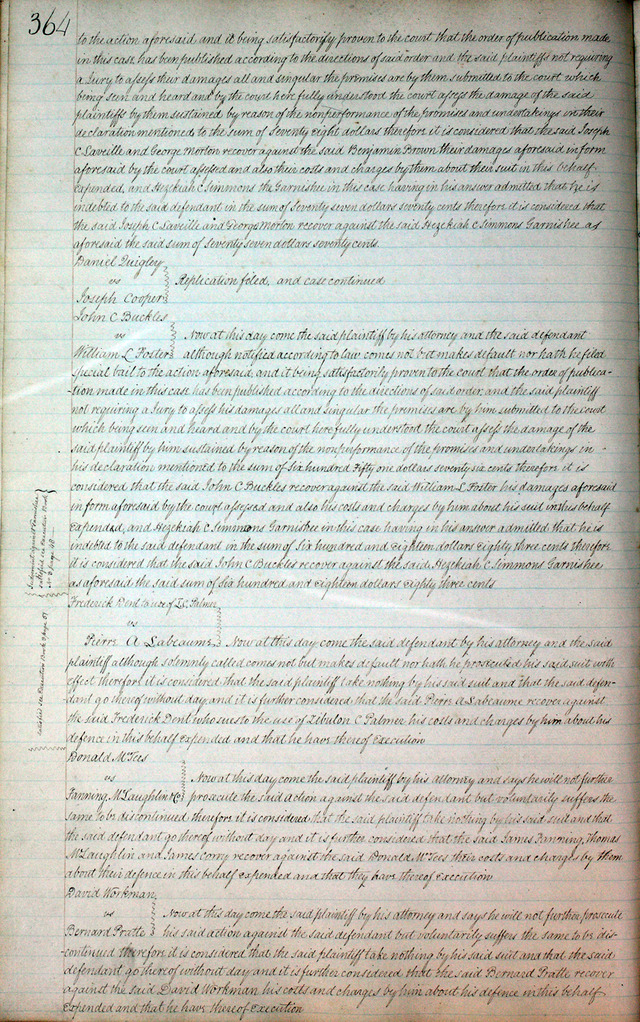 364
to the action aforesaid and it being satisfactorify proven to the court that the order of publication made
in this case has been published according to the directions of said order and the said plaintiffs not requiring
a Jury to assess their damages all and singular the premises are by them submitted to the court which
being seen and heard and by the court here fully understood the court assess the damage of the said
plaintiffs by them sustained by reason of the nonperformance of the promises and undertakings in their
declaration mentioned to the sum of Seventy eight dollars therefore it is considered that the said Joseph
C Laveille and George Morton recover against the said Benjamin Brown their damages aforesaid in form
aforesaid by the court assessed and also their costs and charges by them about their suit in this behalf
expended, and Hezekiah C Simmons the Garnishee in this case having in his answer admitted that he is
indebted to the said defendant in the sum of Seventy seven dollars seventy cents therefore it is considered that
the said Joseph C Laveille and George Morton recover against the said Hezekiah C Simmons Garnishee as
aforesaid the said sum of Seventy seven dollars seventy cents.
Daniel Quigley
vs Replication filed, and case continued
Joseph Cooper
John C Buckles
vs Now at this day come the said plaintiff by his attorney and the said defendant
William L Foster although notified according to law comes not but makes default nor hath he filed
Special bail to the action aforesaid and it being satisfactorily proven to the court that the order of publica-
-tion made in this case has been published according to the directions of said order and the said plaintiff
not requiring a Jury to assess his damages all and singular the premises are by him submitted to the court
which being seen and heard and by the court here fully understood the court assess the damage of the
said plaintiff by him sustained by reason of the nonperformance of the promises and undertakings in
his declaration mentioned to the sum of Six hundred Fifty one dollars seventy six cents therefore it is
considered that the said John C Buckles recover against the said William L Foster his damages aforesaid
in form aforesaid by the court assessed and also his costs and charges by him about his suit in this behalf
Expended, and Hezekiah C Simmons Garnishee in this case having in his answer admitted that he is
indebted to the said defendant in the sum of Six hundred and Eighteen dollars Eighty three cents therefore
it is considered that the said John C Buckles recover against the said Hezekiah C Simmons Garnishee
as aforesaid the said sum of Six hundred and Eighteen dollars Eighty three cents
Frederick Dent to use of Z C Palmer
vs
Pierre A Labeaume Now at this day come the said defendant by his attorney and the said
plaintiff although solemnly called comes not but makes default nor hath he prosecuted his said suit with
effect therefore it is considered that the said plaintiff take nothing by his said suit and that the said defen-
dant go thereof without day and it is further considered that the said Pierre A Labeaume recover against
the said Frederick Dent who sues to the use of Zibulon C Palmer his costs and charges by him about his
defence in this behalf Expended and that he have thereof Execution
Donald McTees
vs Now at this day come the said plaintiff by his attorney and says he will not further
Fanning McLaughlin & Co prosecute the said action against the said defendant but voluntarily suffers the
same to be discontinued therefore it is considered that the said plaintiff take nothing by his said suit and that
the said defendant go thereof without day and it is further considered that the said James Fanning, Thomas
McLaughlin and James corry recover against the said Donald McTees their costs and charges by them
about their defence in this behalf Expended and that they have thereof Execution
David Workman
vs Now at this day come the said plaintiff by his attorney and says he will not further prosecute
Bernard Pratte his said action against the said defendant but voluntarily suffers the same to be dis-
-continued therefore it is considered that the said plaintiff take nothing by his said suit and that the said
defendant go thereof without day and it is further considered that the said Bernard Pratte recover
against the said David Workman his costs and charges by him about his defence in this behalf
Expended and that he have thereof Execution